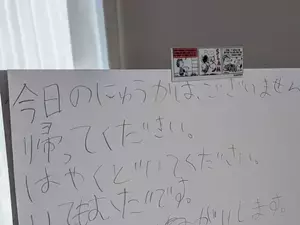 今日のにゅうかは、ございません
帰ってください。
はやくどいてください。
いてもむだです。
ねがいします。